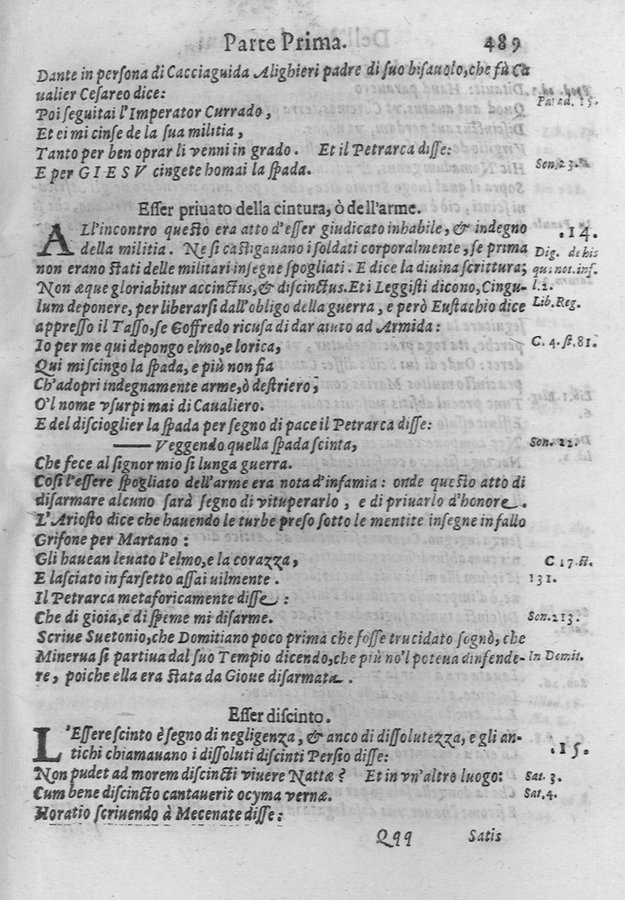 Parte Prima. 489
Dante in persona di Cacciaguida Alighieri padre di suo bisauolo, che fù Ca
ualier Cesareo dice:
Poi seguitai l'Imperator Currado, Parad. 15.
Et ei mi cinse de la sua militia,
Tanto per ben oprar li venni in grado. Et il Petrarca disse:
E per GIESV cingete homai la spada. Son. 23.
Esser priuato della cintura, ò dell'arme.
ALl'incontro questo era atto d'esser giudicato inhabile, & indegno .14.
della militia. Ne si castigauano i soldati corporalmente, se prima Dig. de his
non erano stati delle militari insegne spogliati. E dice la diuina scrittura; qui not. inf.
Non æque gloriabitur accinctus, & discinctus. Et i Leggisti dicono, Cingu- l. 2.
lum deponere, per liberarsi dall'obligo della guerra, e però Eustachio dice Lib. Reg.
appresso il Tasso, se Goffredo ricusa di dar aiuto ad Armida:
Io per me qui depongo elmo, e lorica, C. 4. st. 81.
Qui mi scingo la spada, e più non fia
Ch'adopri indegnamente arme, ò destriero;
O'l nome vsurpi mai di Caualiero.
E del discioglier la spada per segno di pace il Petrarca disse:
—— Veggendo quella spada scinta, Son. 22.
Che fece al signor mio si lunga guerra.
Così l'essere spogliato dell'arme era nota d'infamia: onde questo atto di
disarmare alcuno sarà segno di vituperarlo, e di priuarlo d'honore.
L'Ariosto dice che hauendo le turbe preso sotto le mentite insegne in fallo
Grifone per Martano:
Gli hauean leuato l'elmo, e la corazza, C. 17. st.
E lasciato in farsetto assai uilmente. 131.
Il Petrarca metaforicamente disse:
Che di gioia, e di speme mi disarme. Son. 213.
Scriue Suetonio, che Domitiano poco prima che fosse trucidato sognò, che
Minerua si partiua dal suo Tempio dicendo, che più no'l poteua dinfende- In Domit.
re, poiche ella era stata da Gioue disarmata.
Esser discinto.
L'Essere scinto è segno di negligenza, & anco di dissolutezza, e gli an- .15.
tichi chiamauano i dissoluti discinti Persio disse:
Non pudet ad morem discincti viuere Nattæ? Et in vn'altro luogo: Sat. 3.
Cum bene discincto cantauerit ocyma vernæ. Sat. 4.
Horatio scriuendo à Mecenate disse:
Qqq Satis